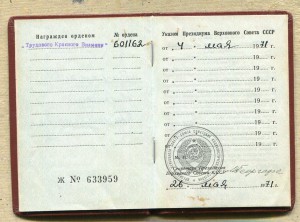 Награжден орденом
№ ордена
"Трудового Красного Знамени"
601162
Ж № 633959
Указом Президиума Верховного Совета СССР
от " 4 " мая 1971 г.
от " " 19 г.
от " " 19 г.
от " " 19 г.
от " " 19 г.
от " " 19 г.
от " " 19 г.
от " " 19 г.
Секретарь Президиума
Верховного Совета СССР
26 мая 1971 г.